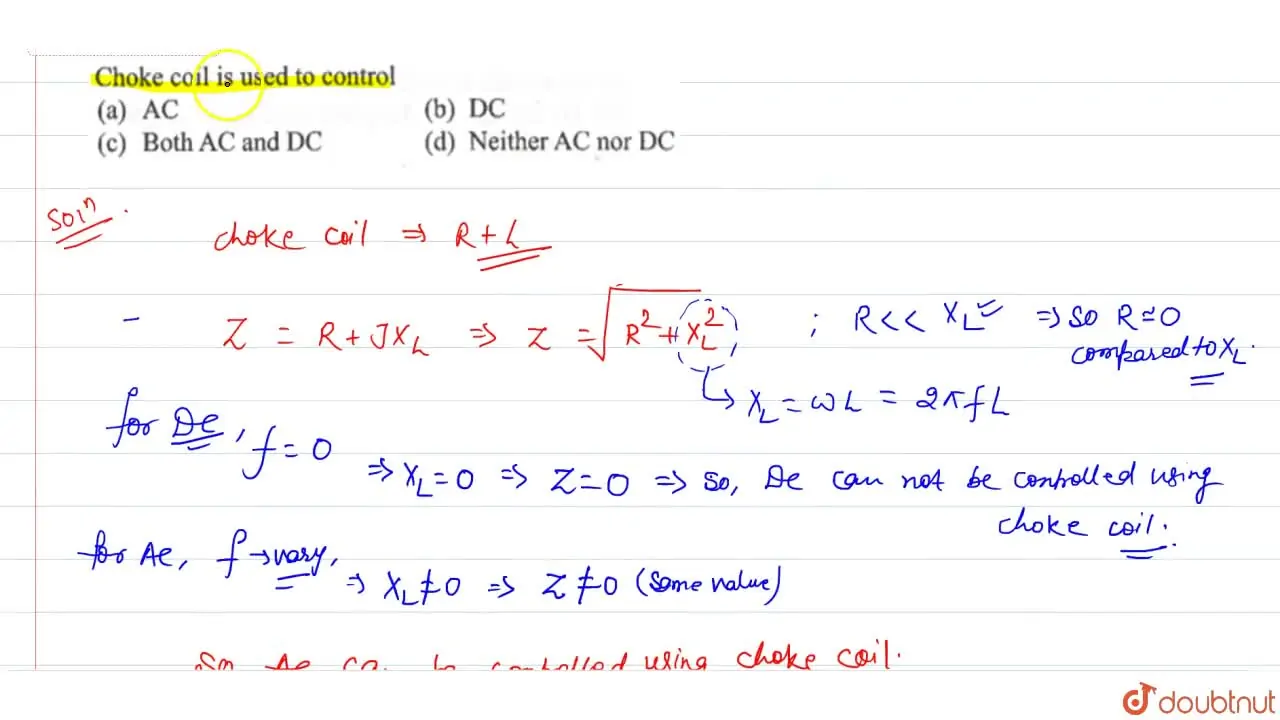 Choke coil is used to control
(a) AC (b) DC
(c) Both AC and DC (d) Neither AC nor DC
Solⁿ.
Choke coil ⇒ R+L
Z = R+JX_L ⇒ Z = √(R²+X_L²) ; R<< X_L ⇒ So R≃0
compared to X_L.
→ X_L = ωL = 2πfL
for DC, f=0
⇒ X_L=0 ⇒ Z=0 ⇒ So, DC can not be controlled using
choke coil.
for AC, f→vary,
⇒ X_L≠0 ⇒ Z≠0 (Some value)
So AC can be controlled using choke coil.
doubtnut